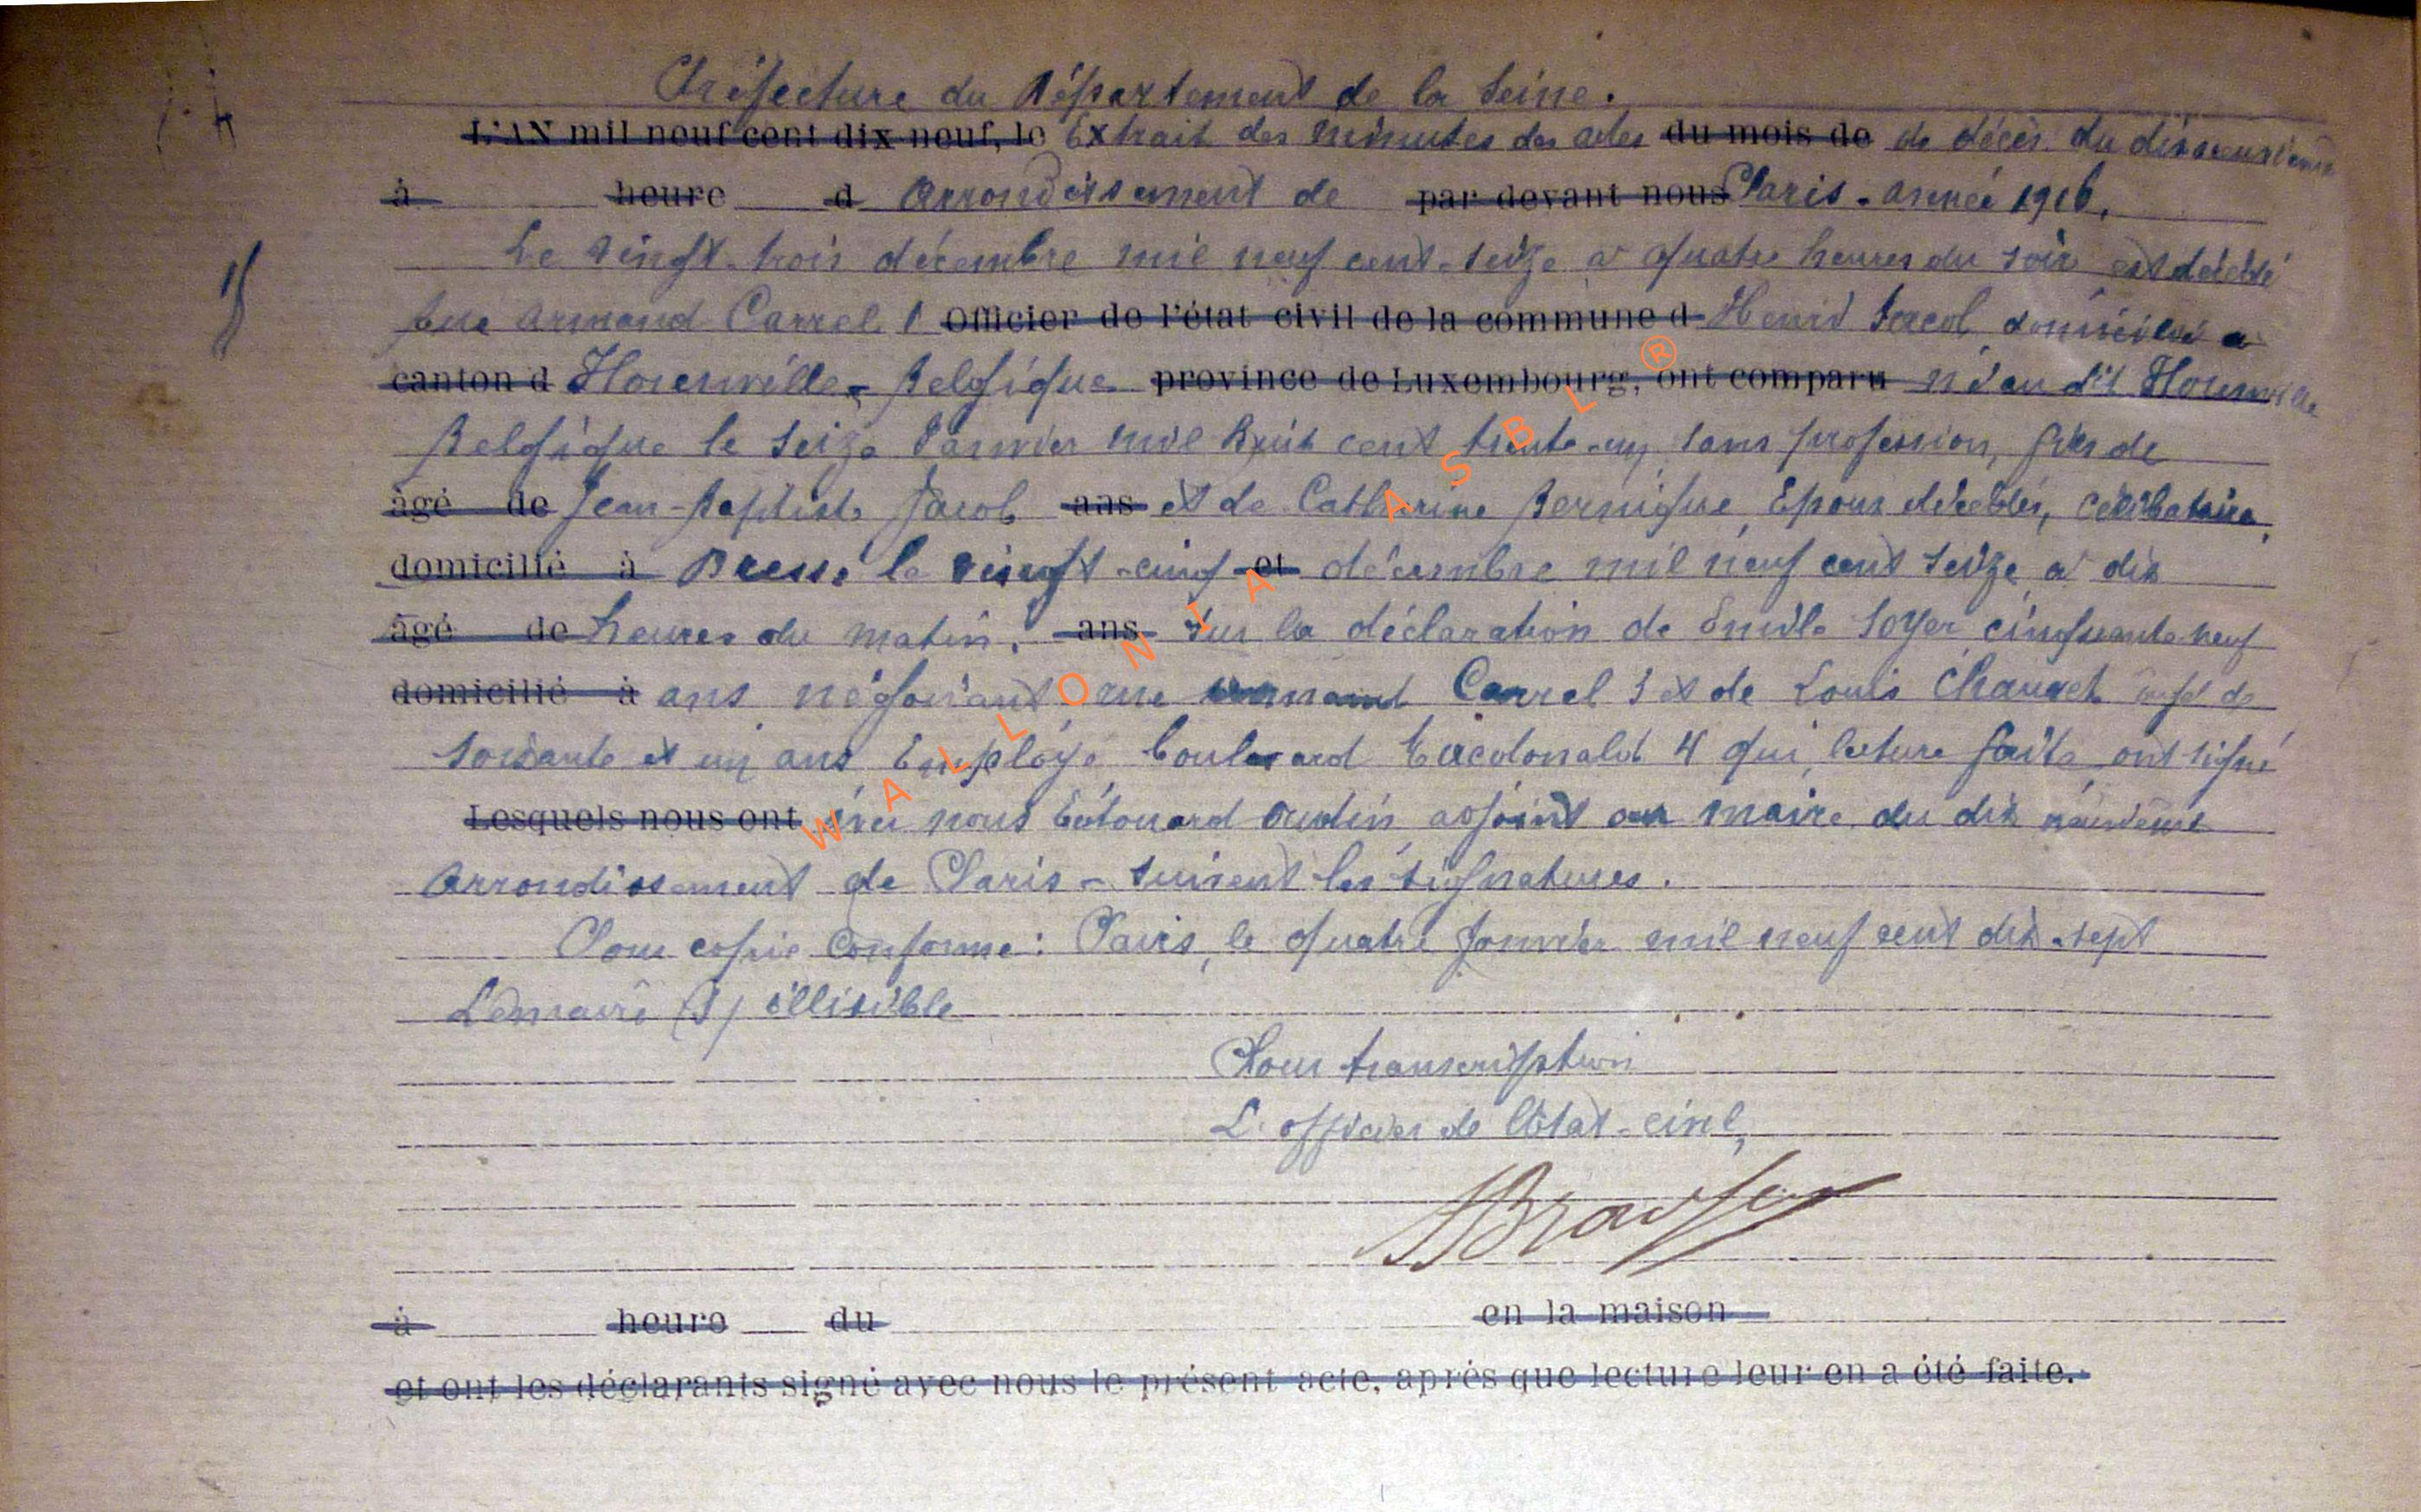 Préfecture du Département de la Seine.
L'AN mil neuf cent dix-neuf, le Extrait des minutes des actes du mois de de décès du dixneuvième
à heure d Arrondissement de par devant nous Paris - année 1916.
Le vingt-trois décembre mil neuf cent-seize à quatre heures du soir est décédé
rue Armand Carrel 1 Officier de l'état civil de la commune d Henri Jacob domicilié à
canton d Houmville - Belgique province de Luxembourg, ont comparu né au dit Houmville
Belgique le seize Janvier mil huit cent trente-un, sans profession, fils de
âgé de Jean-Baptiste Jacob ans et de Catherine Bernique, Epoux décédés, célibataire,
domicilié à Dressé le vingt-cinq et décembre mil neuf cent seize à dix
âgé de heures du matin. ans sur la déclaration de Emile Soyer cinquante neuf
domicilié à ans négociant rue Armand Carrel 1 et de Louis Chauvet âgé de
soixante et un ans Employé boulevard Macdonald 4 qui, lecture faite ont signé
Lesquels nous ont avec nous Edouard Oudin adjoint au maire du dix neuvième
Arrondissement de Paris - suivent les signatures.
Pour copie conforme : Paris, le quatre Janvier mil neuf cent dix-sept
Le maire (s) illisible
Pour transcription
L'officier de l'état-civil,
à heure du en la maison
et ont les déclarants signé avec nous le présent acte, après que lecture leur en a été faite.
WALLONIA ASBL ®